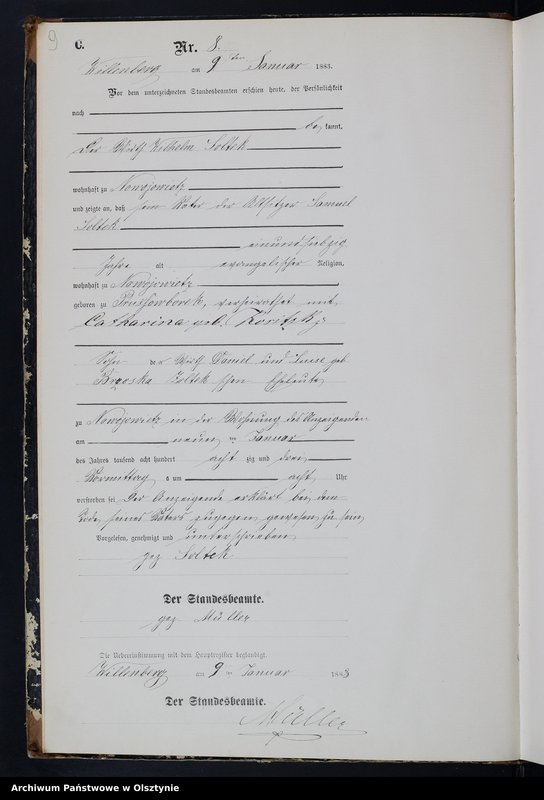 9
C.
Nr. 8.
Willenberg am 9ten Januar 1883.
Vor dem unterzeichneten Standesbeamten erschien heute, der Persönlichkeit
nach
bekannt,
Der Wirth Wilhelm Soltek
wohnhaft zu Nowojowietz
und zeigte an, daß sein Vater der Altsitzer Samuel
Soltek
einundsiebzig
Jahre alt evangelischer Religion,
wohnhaft zu Nowojowietz
geboren zu verheirathet mit
Catharina geb.
Sohn der Wirth Daniel und Luise geb
Soltek schen Eheleute
zu Nowojowietz in der Wohnung des Anzeigenden
am neunten Januar
des Jahres tausend acht hundert acht zig und drei
Vormittag s um acht Uhr
verstorben sei. Der Anzeigende erklärt bei dem
Tode seines Vaters zugegen gewesen zu sein
Vorgelesen, genehmigt und unterschrieben
gez Soltek
Der Standesbeamte.
gez Müller
Die Uebereinstimmung mit dem Hauptregister beglaubigt.
Willenberg am 9ten Januar 1883
Der Standesbeamte.
Müller
Archiwum Państwowe w Olsztynie